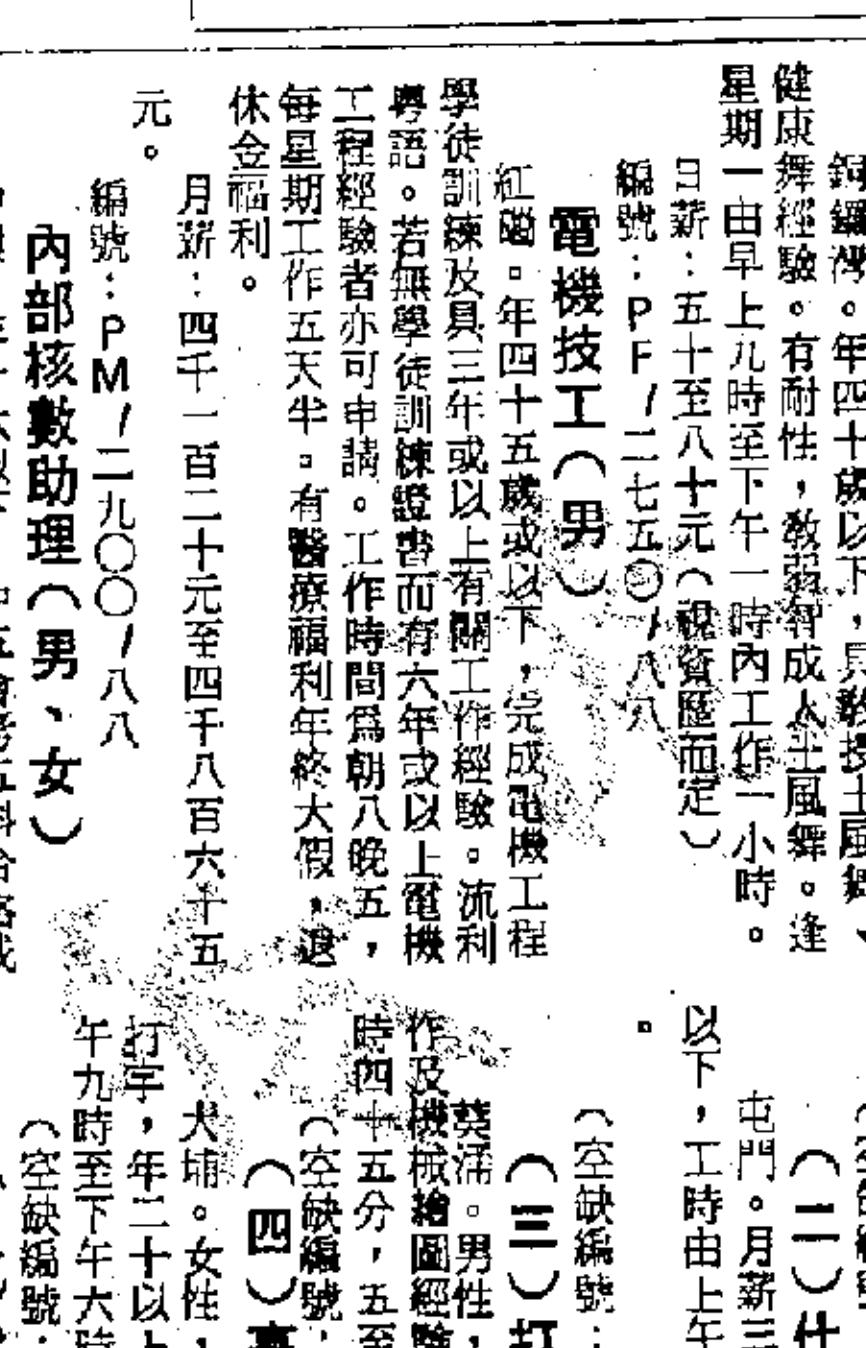 銅鑼灣。年四十歲以下,具敎授土風舞、
健康舞經驗。有耐性,敎弱智成人土風舞。逢
星期一由早上九時至下午一時內工作一小時。
日薪:五十至八十元(視資歷而定)
編號:PF/二七五〇/八八
電機技工(男)
紅磡。年四十五歲或以下,完成電機工程
學徒訓練及具三年或以上有關工作經驗。流利
粵語。若無學徒訓練證書而有六年或以上電機
工程經驗者亦可申請。工作時間爲朝八晚五,
每星期工作五天半。有醫療福利年終大假,退
休金福利。
月薪:四千一百二十元至四千八百六十五
元。
編號:PM/二九〇〇/八八
內部核數助理(男、女)
(二)仕
屯門。月薪三
以下,工時由上午
。
(空缺編號:
(三)打
葵涌。男性,
作及機械繪圖經驗
時四十五分,五至
(空缺編號:
(四)
大埔。女性,
打字,年二十以上
午九時至下午六時
(空缺編號: